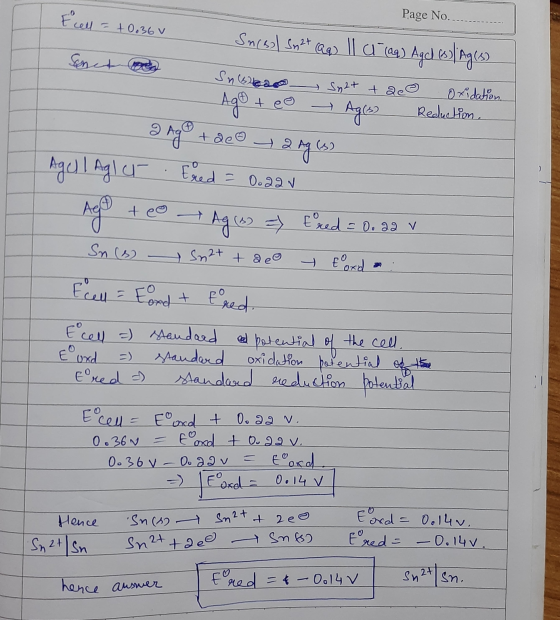 Page No.
E°cell = +0.36v
Sn(s)| Sn²⁺ (aq) || Cl⁻(aq) AgCl (s)|Ag(s)
Sn(s) ⟶ Sn²⁺ + 2e⊖ Oxidation
Ag⊕ + e⊖ ⟶ Ag(s) Reduction.
2Ag⊕ + 2e⊖ → 2Ag(s)
AgCl|Ag|Cl⁻ . E°red = 0.22 v
Ag⊕ + e⊖ ⟶ Ag(s) ⇒ E°red = 0.22 v
Sn(s) ⟶ Sn²⁺ + 2e⊖ → E°oxd
E°cell = E°oxd + E°red.
E°cell ⇒ standard potential of the cell.
E°oxd ⇒ standard oxidation potential
E°red ⇒ standard reduction potential
E°cell = E°oxd + 0.22 v.
0.36v = E°oxd + 0.22v.
0.36v - 0.22v = E°oxd.
⇒ E°oxd = 0.14 v
Hence Sn(s) → Sn²⁺ + 2e⊖ E°oxd = 0.14v.
Sn²⁺|Sn Sn²⁺ + 2e⊖ ⟶ Sn(s) E°red = -0.14v.
hence answer E°red = -0.14v Sn²⁺|Sn.